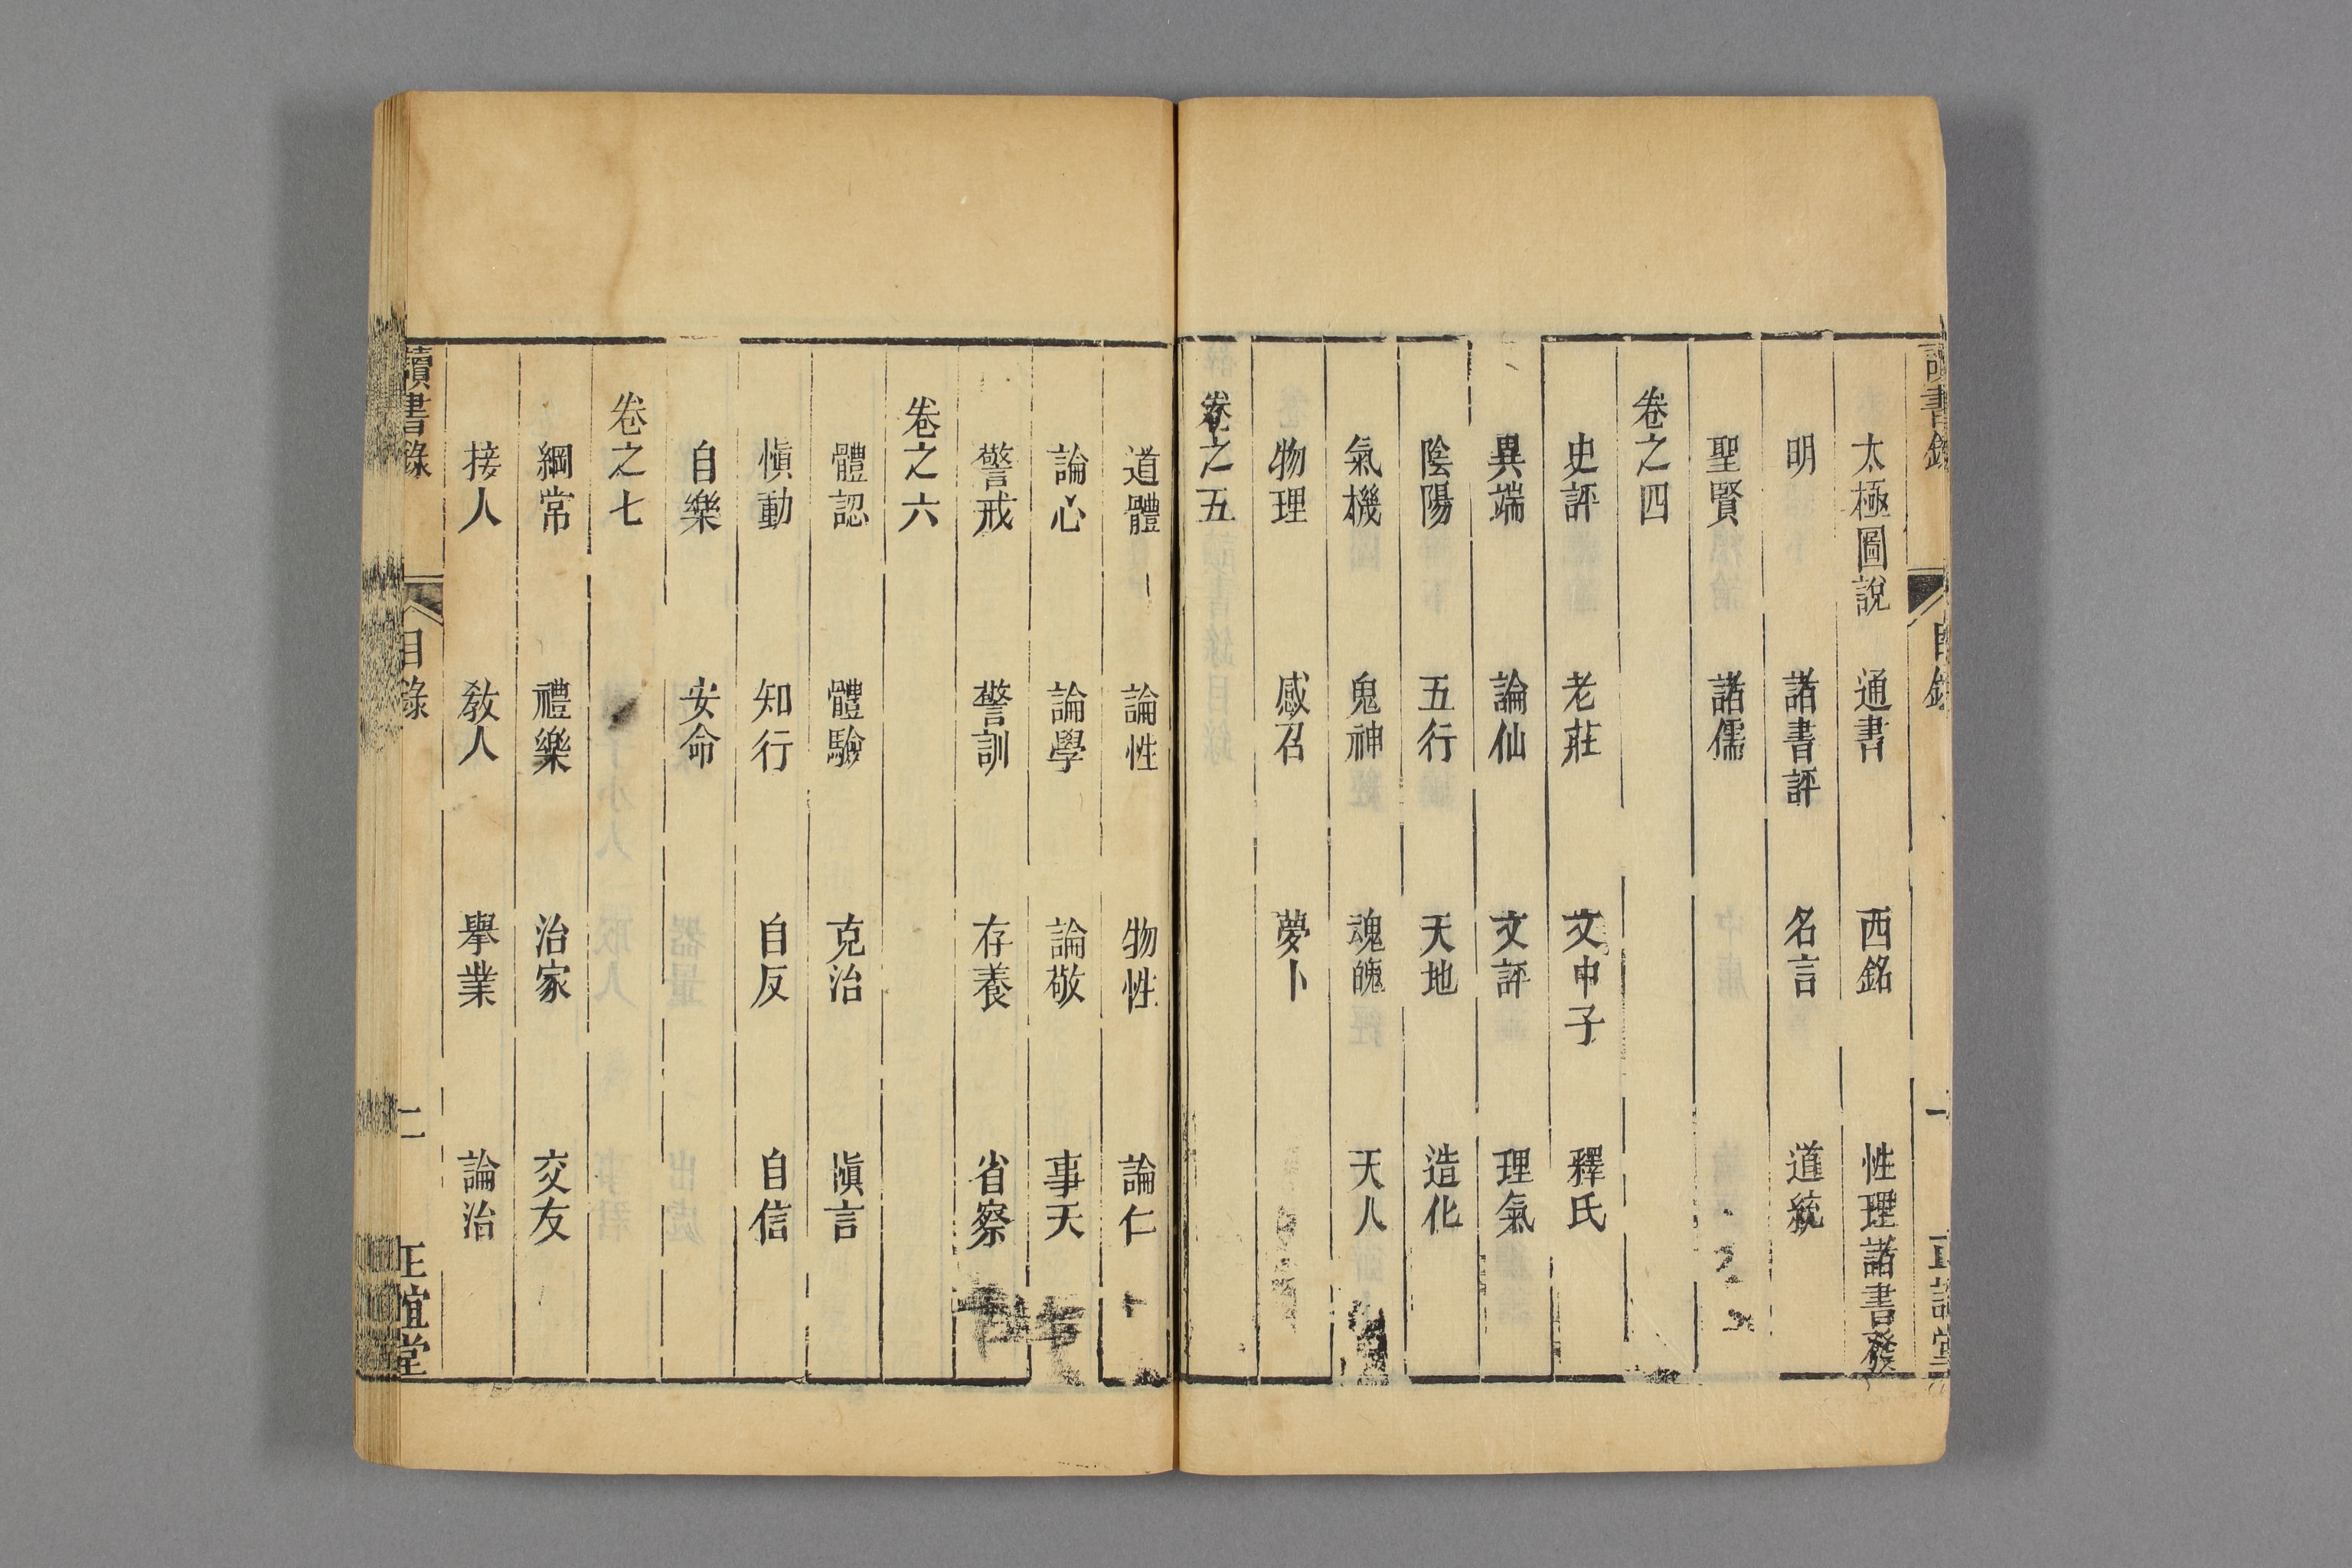 太極圖說 通書 西銘 性理諸書發
明 諸書評 名言 道統
聖賢 諸儒
卷之四
史評 老莊 文中子 釋氏
異端 論仙 文評 理氣
陰陽 五行 天地 造化
氣機 鬼神 魂魄 天人
物理 感召 夢卜
卷之五
道體 論性 物性 論仁
論心 論學 論敬 事天
警戒 警訓 存養 省察
卷之六
體認 體驗 克治 愼言
愼動 知行 自反 自信
自樂 安命
卷之七
綱常 禮樂 治家 交友
接人 敎人 舉業 論治
讀書錄 目錄 二 正誼堂